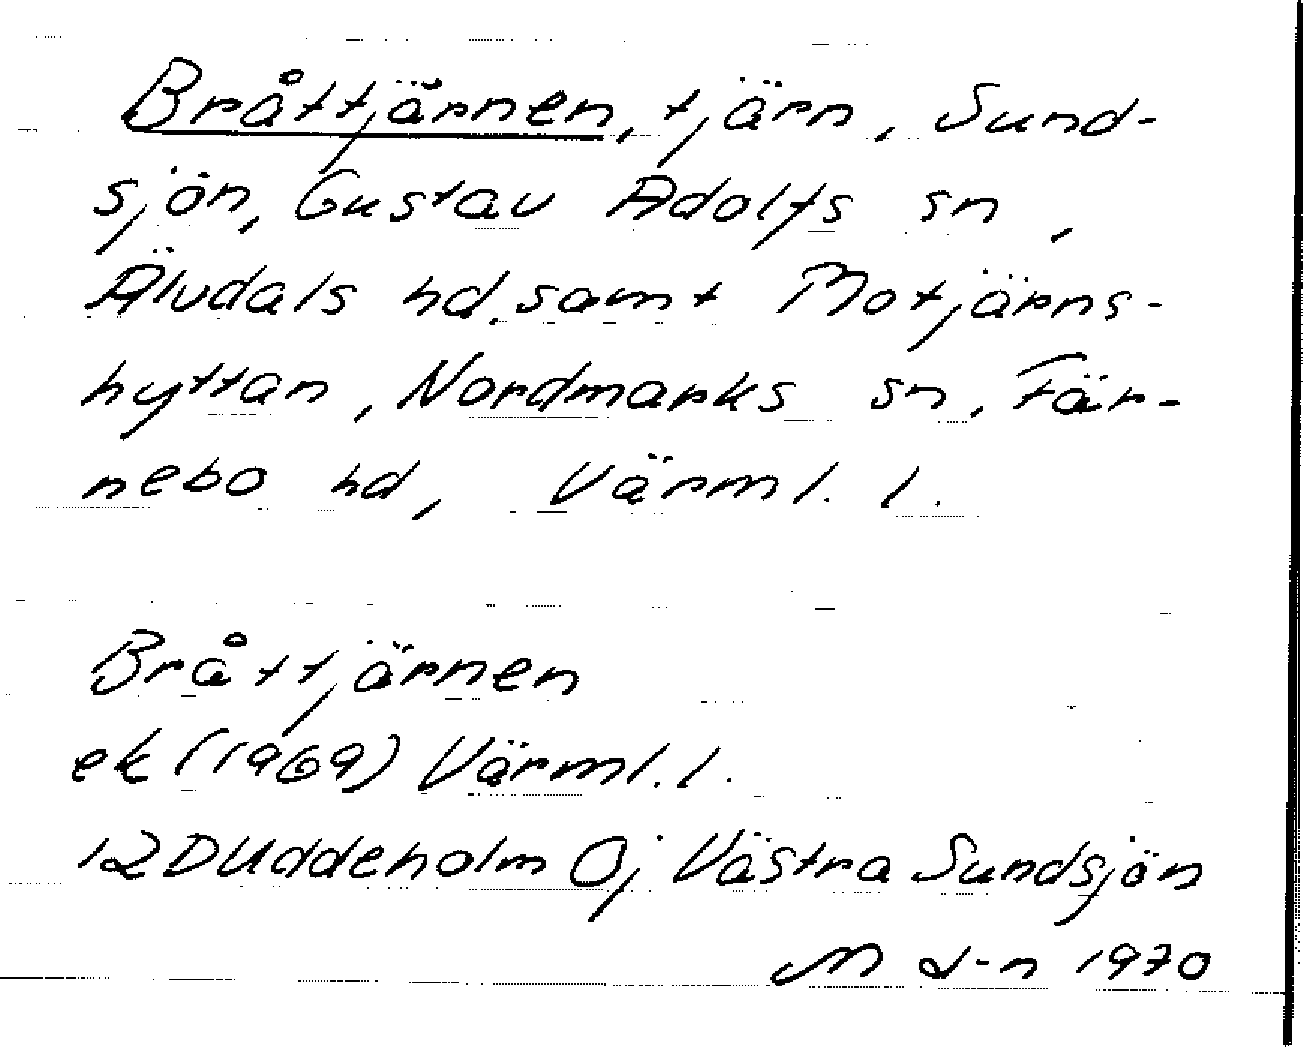 Bråttjärnen, tjärn, Sund-
sjön, Gustav Adolfs sn,
Älvdals hd, samt Motjärns-
hyttan, Nordmarks sn, Fär-
nebo hd, Värml. l.
Bråttjärnen
ek (1969) Värml. l.
12D Uddeholm 0j Västra Sundsjön
M d-n 1970